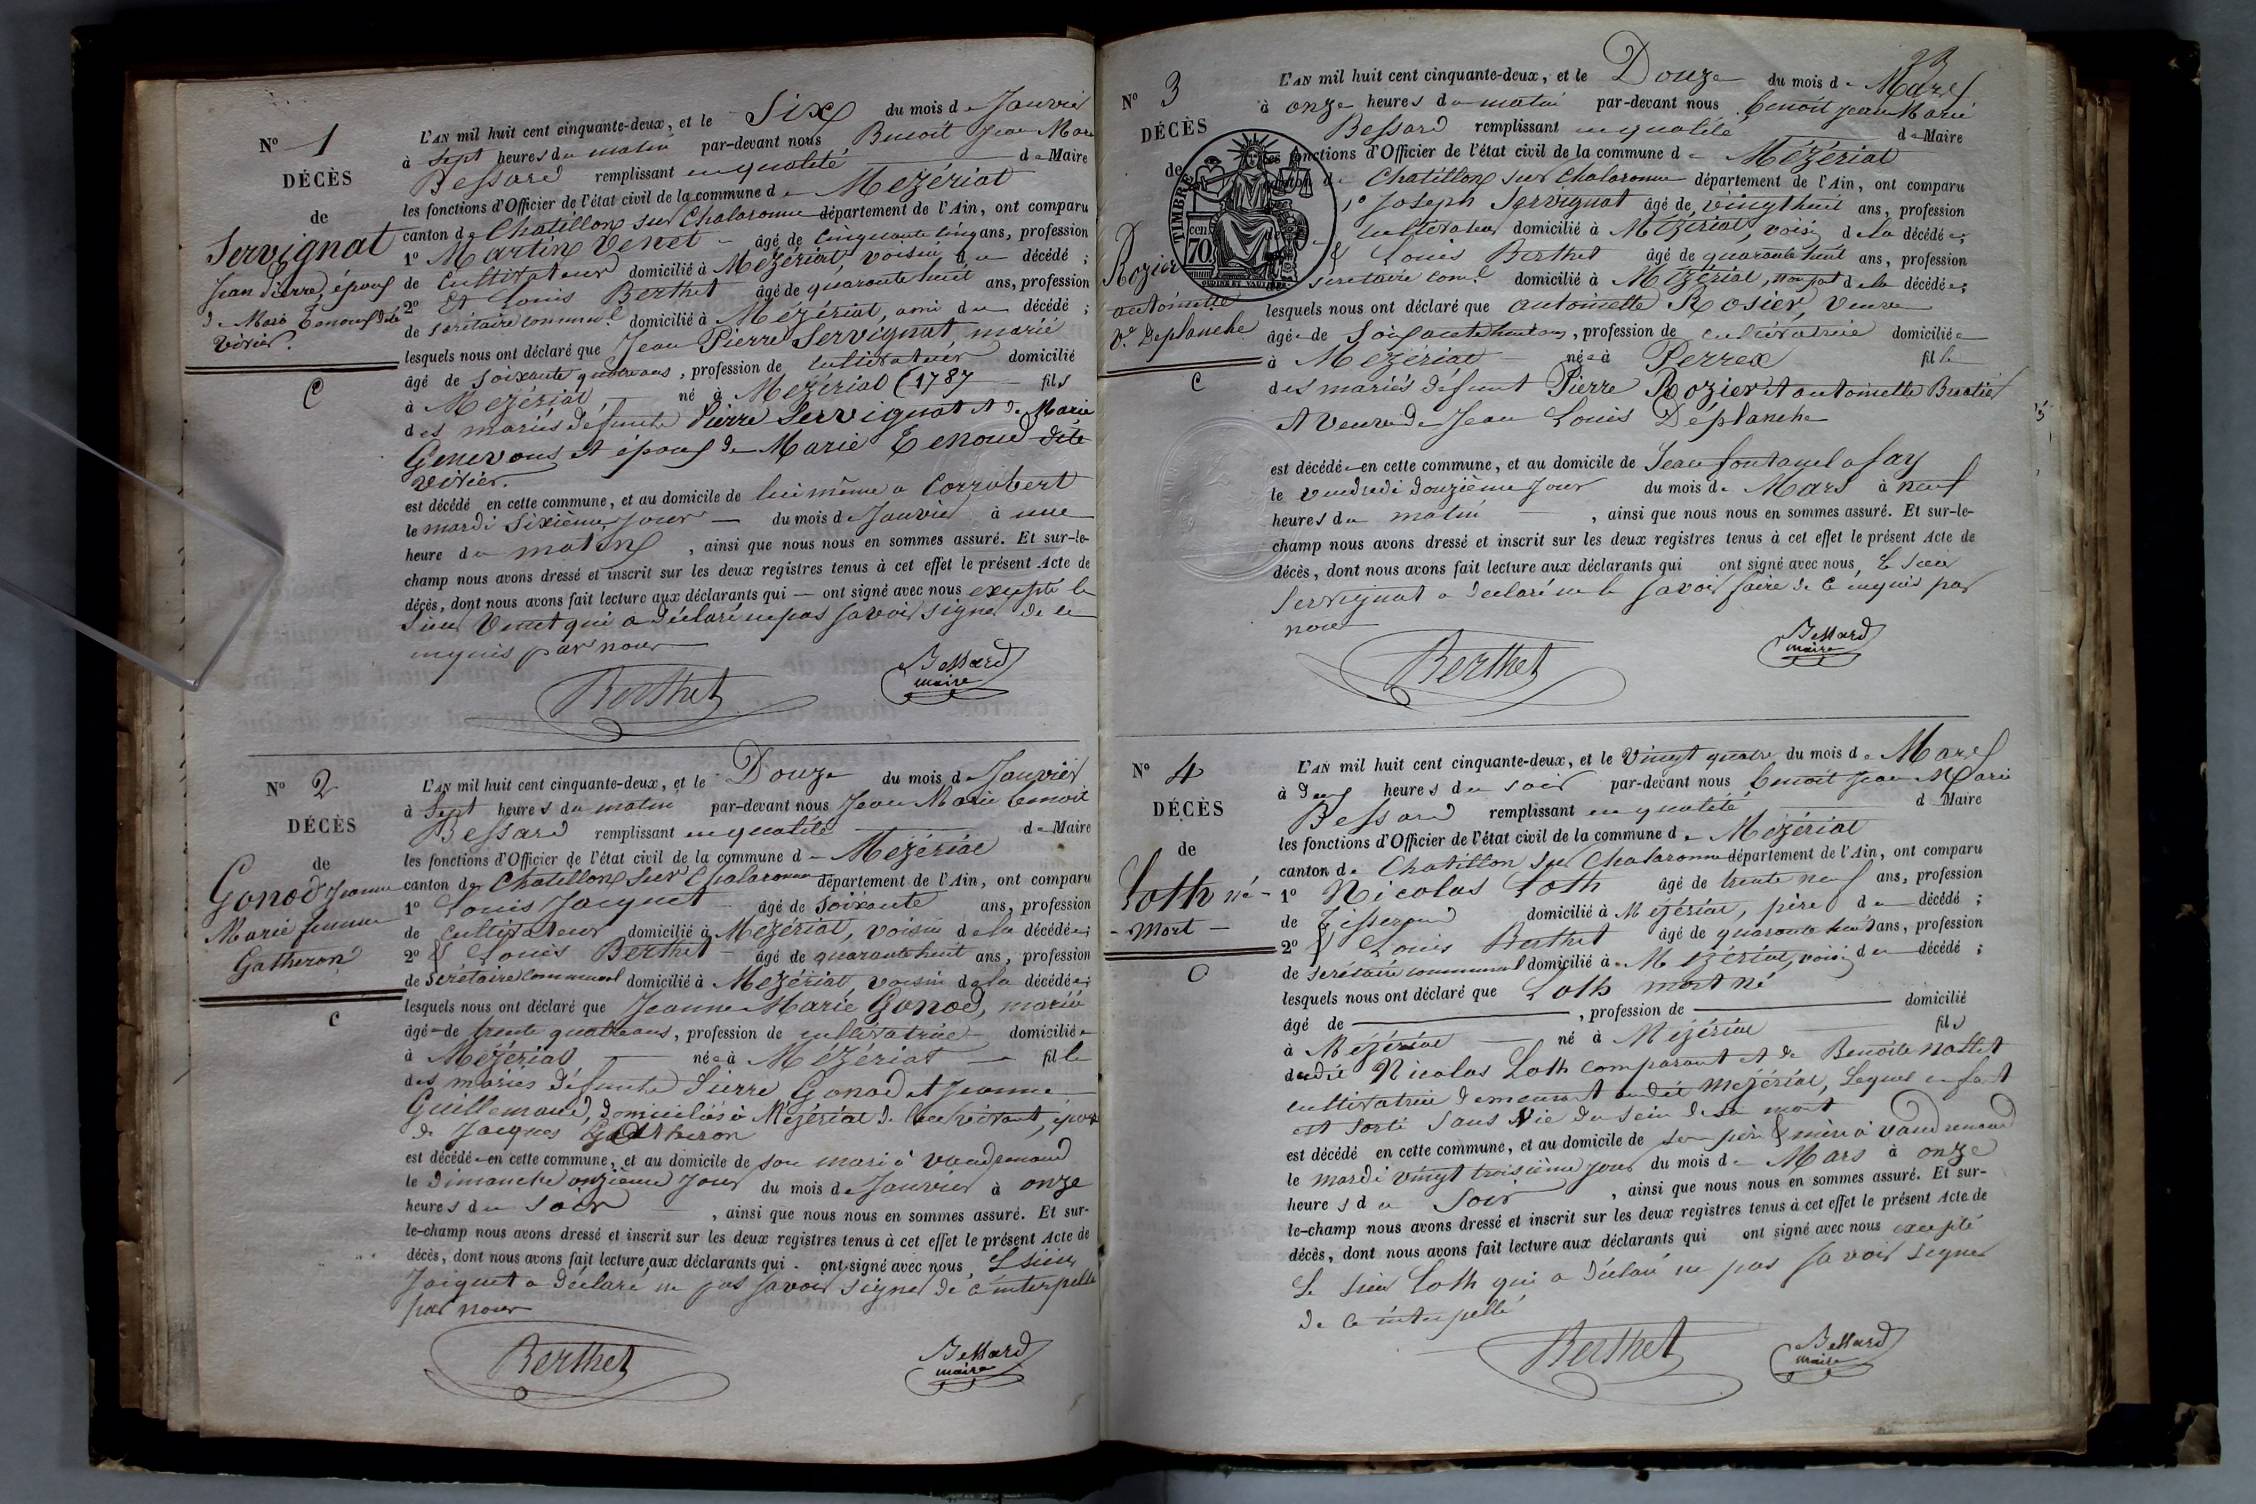 N° 1
DÉCÈS
de
Servignat
Jean Pierre, époux
de Marie Tenoud dite
Vivier.
C
L'AN mil huit cent cinquante-deux, et le Six du mois de Janvier
à Sept heures du matin par-devant nous Benoit Jean Marie
Bessard remplissant en qualité de Maire
les fonctions d'Officier de l'état civil de la commune de Mézériat
canton de Chatillon sur Chalaronne département de l'Ain, ont comparu
1° Martin Venet âgé de Cinquante cinq ans, profession
de Cultivateur domicilié à Mézériat, voisin du décédé ;
2° Et Louis Berthet âgé de quarante huit ans, profession
de secrétaire communal domicilié à Mézériat, ami du décédé ;
lesquels nous ont déclaré que Jean Pierre Servignat, marié
âgé de Soixante quatre ans, profession de cultivateur domicilié
à Mézériat, né à Mézériat (1787 fils
des mariés défunts Pierre Servignat et de Marie
Genevous et époux de Marie Tenoud dite
Vivier.
est décédé en cette commune, et au domicile de lui même a Corrobert
le mardi Sixième jour du mois de Janvier à une
heure du matin, ainsi que nous nous en sommes assuré. Et sur-le-
champ nous avons dressé et inscrit sur les deux registres tenus à cet effet le présent Acte de
décès, dont nous avons fait lecture aux déclarants qui ont signé avec nous excepté le
Sieur Venet qui a déclaré ne pas savoir signer de ce
enquis par nous
Berthet
Bessard
maire
N° 2
DÉCÈS
de
Gonod Jeanne
Marie femme
Gatheron
C
L'AN mil huit cent cinquante-deux, et le Douze du mois de Janvier
à Sept heures du matin par-devant nous Jean Marie Benoit
Bessard remplissant en qualité de Maire
les fonctions d'Officier de l'état civil de la commune de Mézériat
canton de Chatillon sur Chalaronne département de l'Ain, ont comparu
1° Louis Jacquet âgé de Soixante ans, profession
de Cultivateur domicilié à Mézériat, voisin de la décédée ;
2° & Louis Berthet âgé de quarante huit ans, profession
de Secrétaire Communal domicilié à Mézériat, voisin de la décédée ;
lesquels nous ont déclaré que Jeanne Marie Gonod, mariée
âgée de trente quatre ans, profession de cultivatrice domiciliée
à Mézériat née à Mézériat fille
des mariés défunts Pierre Gonod et Jeanne
Guillemaud, domiciliés à Mézériat de leur vivant, épouse
de Jacques Gatheron
est décédée en cette commune, et au domicile de son mari à Vaudrenand
le Dimanche onzième jour du mois de Janvier à onze
heures du soir, ainsi que nous nous en sommes assuré. Et sur-
le-champ nous avons dressé et inscrit sur les deux registres tenus à cet effet le présent Acte de
décès, dont nous avons fait lecture aux déclarants qui ont signé avec nous, Le sieur
Jacquet a déclaré ne pas savoir signer de ce interpellé
par nous
Berthet
Bessard
maire
23
N° 3
DÉCÈS
de
Rozier
antoinette
Ve Deplanche
C
TIMBRE
70 cen
L'AN mil huit cent cinquante-deux, et le Douze du mois de Mars
à onze heures du matin par-devant nous Benoit Jean Marie
Bessard remplissant en qualité de Maire
les fonctions d'Officier de l'état civil de la commune de Mézériat
canton de Chatillon sur Chalaronne département de l'Ain, ont comparu
1° Joseph Servignat âgé de vingt huit ans, profession
cultivateur domicilié à Mézériat, voisin de la décédée ;
& Louis Berthet âgé de quarante huit ans, profession
secrétaire comal domicilié à Mézériat, non pat de la décédée ;
lesquels nous ont déclaré que antoinette Rosier, Veuve
âgée de Soixante huit ans, profession de cultivatrice domiciliée
à Mézériat née à Perrex fille
des mariés défunt Pierre Rozier et antoinette
et Veuve de Jean Louis Déplanche
est décédée en cette commune, et au domicile de Jean fontanel a fay
le vendredi douzième jour du mois de Mars à neuf
heures du matin, ainsi que nous nous en sommes assuré. Et sur-le-
champ nous avons dressé et inscrit sur les deux registres tenus à cet effet le présent Acte de
décès, dont nous avons fait lecture aux déclarants qui ont signé avec nous, Le sieur
Servignat a déclaré ne le savoir faire de ce enquis par
nous
Berthet
Bessard
maire
N° 4
DÉCÈS
de
Loth né-
- mort -
C
L'AN mil huit cent cinquante-deux, et le Vingt quatre du mois de Mars
à deux heures du soir par-devant nous Benoit Jean Marie
Bessard remplissant en qualité de Maire
les fonctions d'Officier de l'état civil de la commune de Mézériat
canton de Chatillon sur Chalaronne département de l'Ain, ont comparu
1° Nicolas Loth âgé de trente neuf ans, profession
de Tisserand domicilié à Mézériat, père du décédé ;
2° & Louis Berthet âgé de quarante huit ans, profession
de secrétaire communal domicilié à Mézériat, voisin du décédé ;
lesquels nous ont déclaré que Loth mort né
âgé de, profession de domicilié
à Mézériat né à Mézériat fils
dudit Nicolas Loth comparant et de Benoite
cultivatrice demeurant audit Mézériat, Lequel enfant
est sorti sans vie du sein de sa mort
est décédé en cette commune, et au domicile de son père & mère à Vaudrenand
le mardi vingt troisième jour du mois de Mars à onze
heures du Soir, ainsi que nous nous en sommes assuré. Et sur-
le-champ nous avons dressé et inscrit sur les deux registres tenus à cet effet le présent Acte de
décès, dont nous avons fait lecture aux déclarants qui ont signé avec nous excepté
Le sieur Loth qui a déclaré ne pas savoir signer
de ce interpellé
Berthet
Bessard
maire